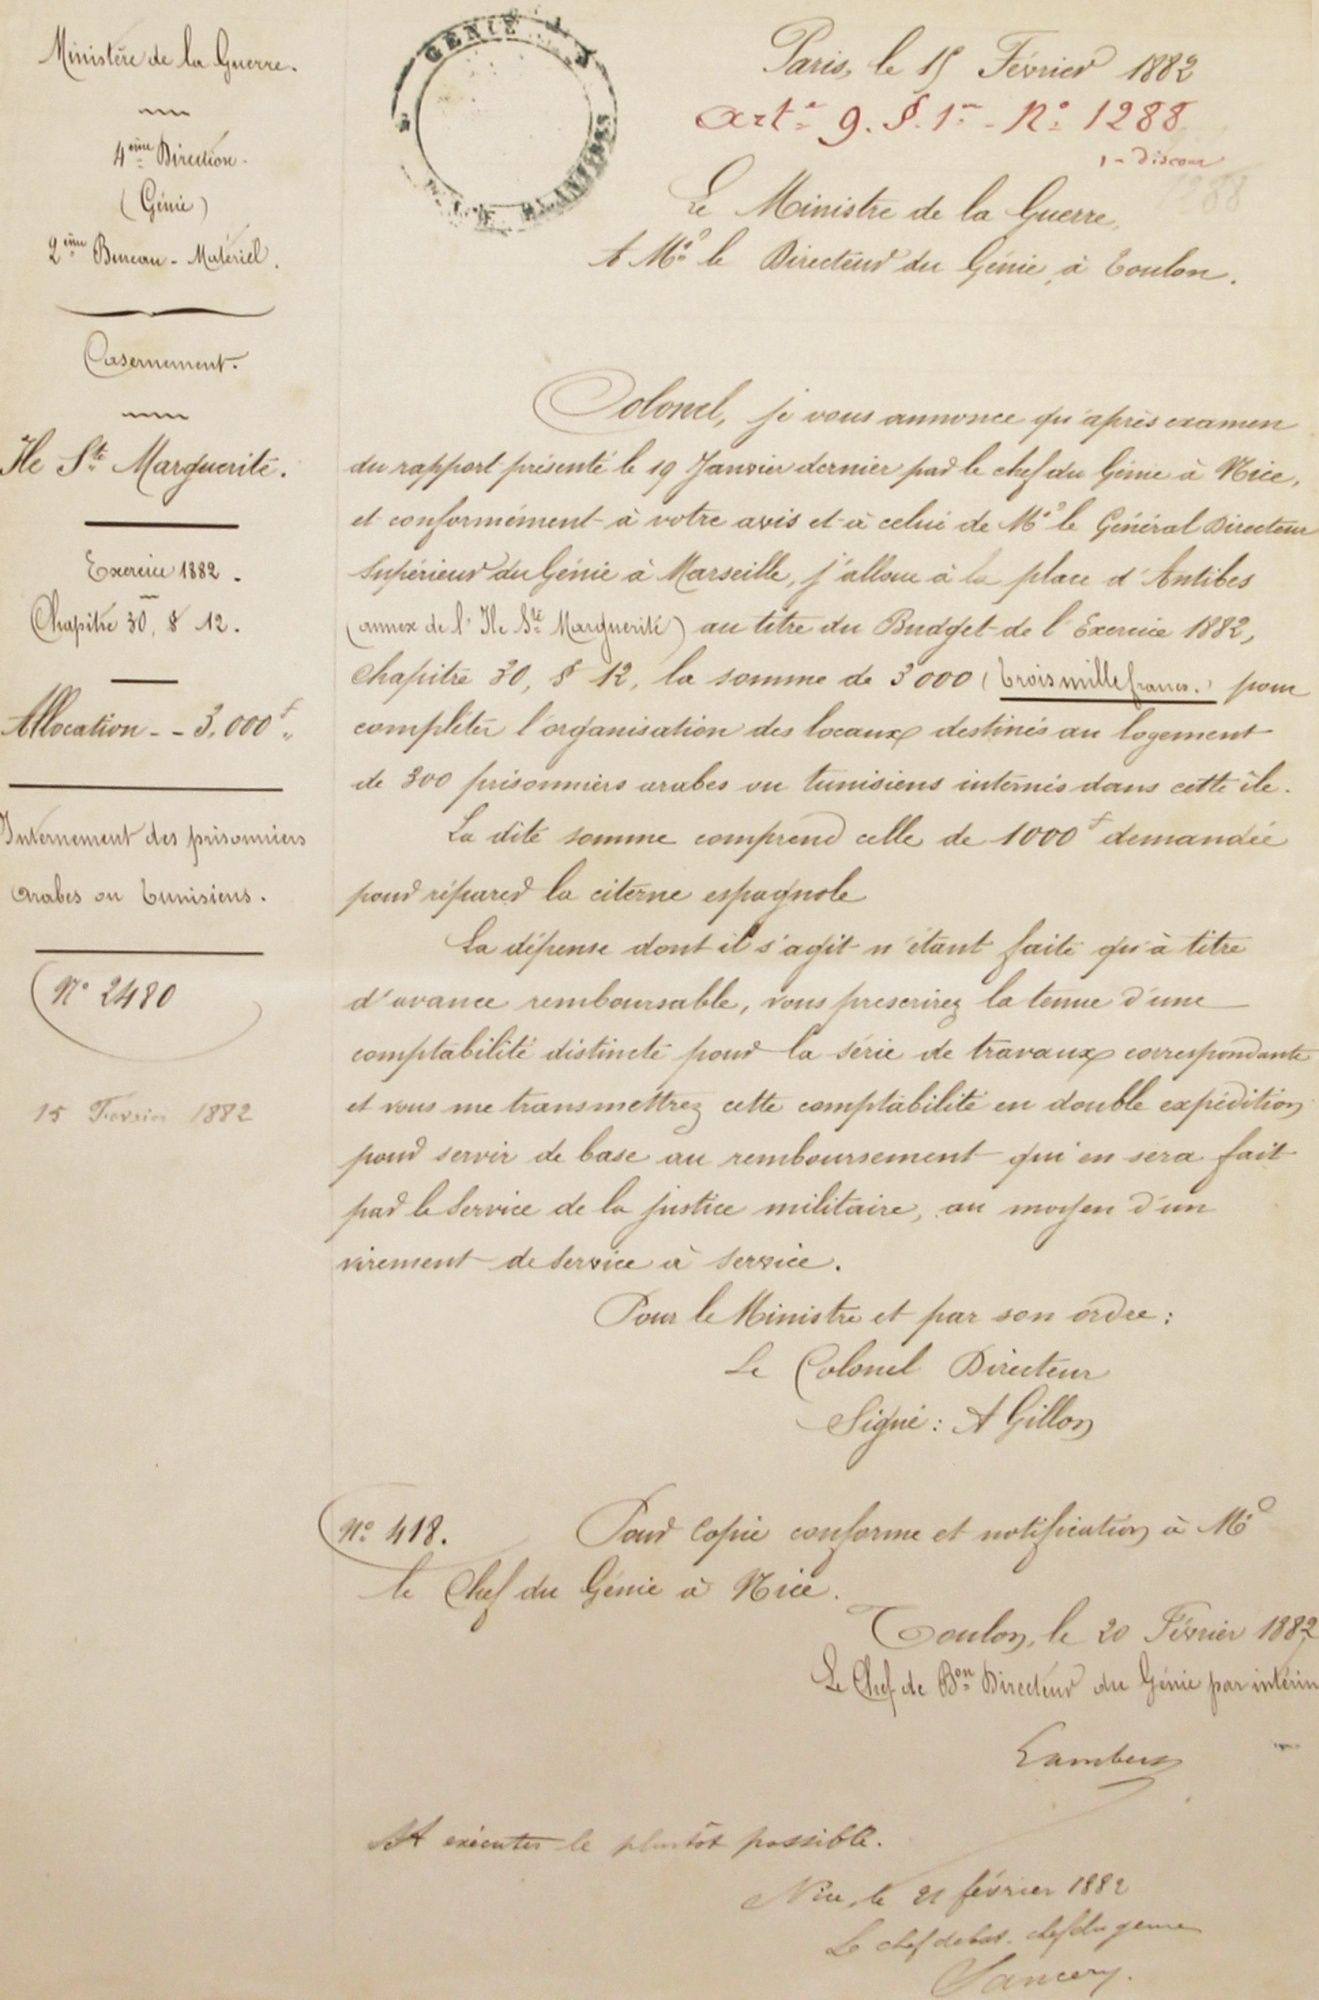 Ministère de la Guerre.
4ème Direction.
(Génie)
2ème Bureau - Matériel.
Casernement.
Ile Ste Marguerite.
Exercice 1882.
Chapitre 30, § 12.
Allocation - - 3.000f "
Internement des prisonniers
arabes ou tunisiens.
N° 2480
15 Fevrier 1882
GENIE
Paris, le 15 Février 1882
Arte 9. §. 1er - N° 1288
1288
Le Ministre de la Guerre,
A Mr le Directeur du Génie, à Toulon.
Colonel, je vous annonce qu'après examen
du rapport présenté le 19 Janvier dernier par le chef du Génie à Nice,
et conformément à votre avis et à celui de Mr le Général Directeur
Supérieur du Génie à Marseille, j'alloue à la place d'Antibes
(annex de l'Ile Ste Marguerite) au titre du Budget de l'Exercice 1882,
Chapitre 30, § 12, la somme de 3000 (trois mille francs.) pour
compléter l'organisation des locaux destinés au logement
de 300 prisonniers arabes ou tunisiens internés dans cette île.
La dite somme comprend celle de 1000f demandée
pour réparer la citerne espagnole
La dépense dont il s'agit n'étant faite qu'à titre
d'avance remboursable, vous prescrirez la tenue d'une
comptabilité distincte pour la série de travaux correspondante
et vous me transmettrez cette comptabilité en double expédition
pour servir de base au remboursement qui en sera fait
par le Service de la justice militaire, au moyen d'un
virement de service à service.
Pour le Ministre et par son ordre :
Le Colonel Directeur
Signé : A Gillon
N° 418. Pour Copie conforme et notification à Mr
le Chef du Génie à Nice.
Toulon, le 20 Février 1882
Le Chef de Bon Directeur du Génie par intérim
Lambert
A exécuter le plustôt possible.
Nice, le 21 février 1882
Le chef de bat. chef du genie
Sancery.